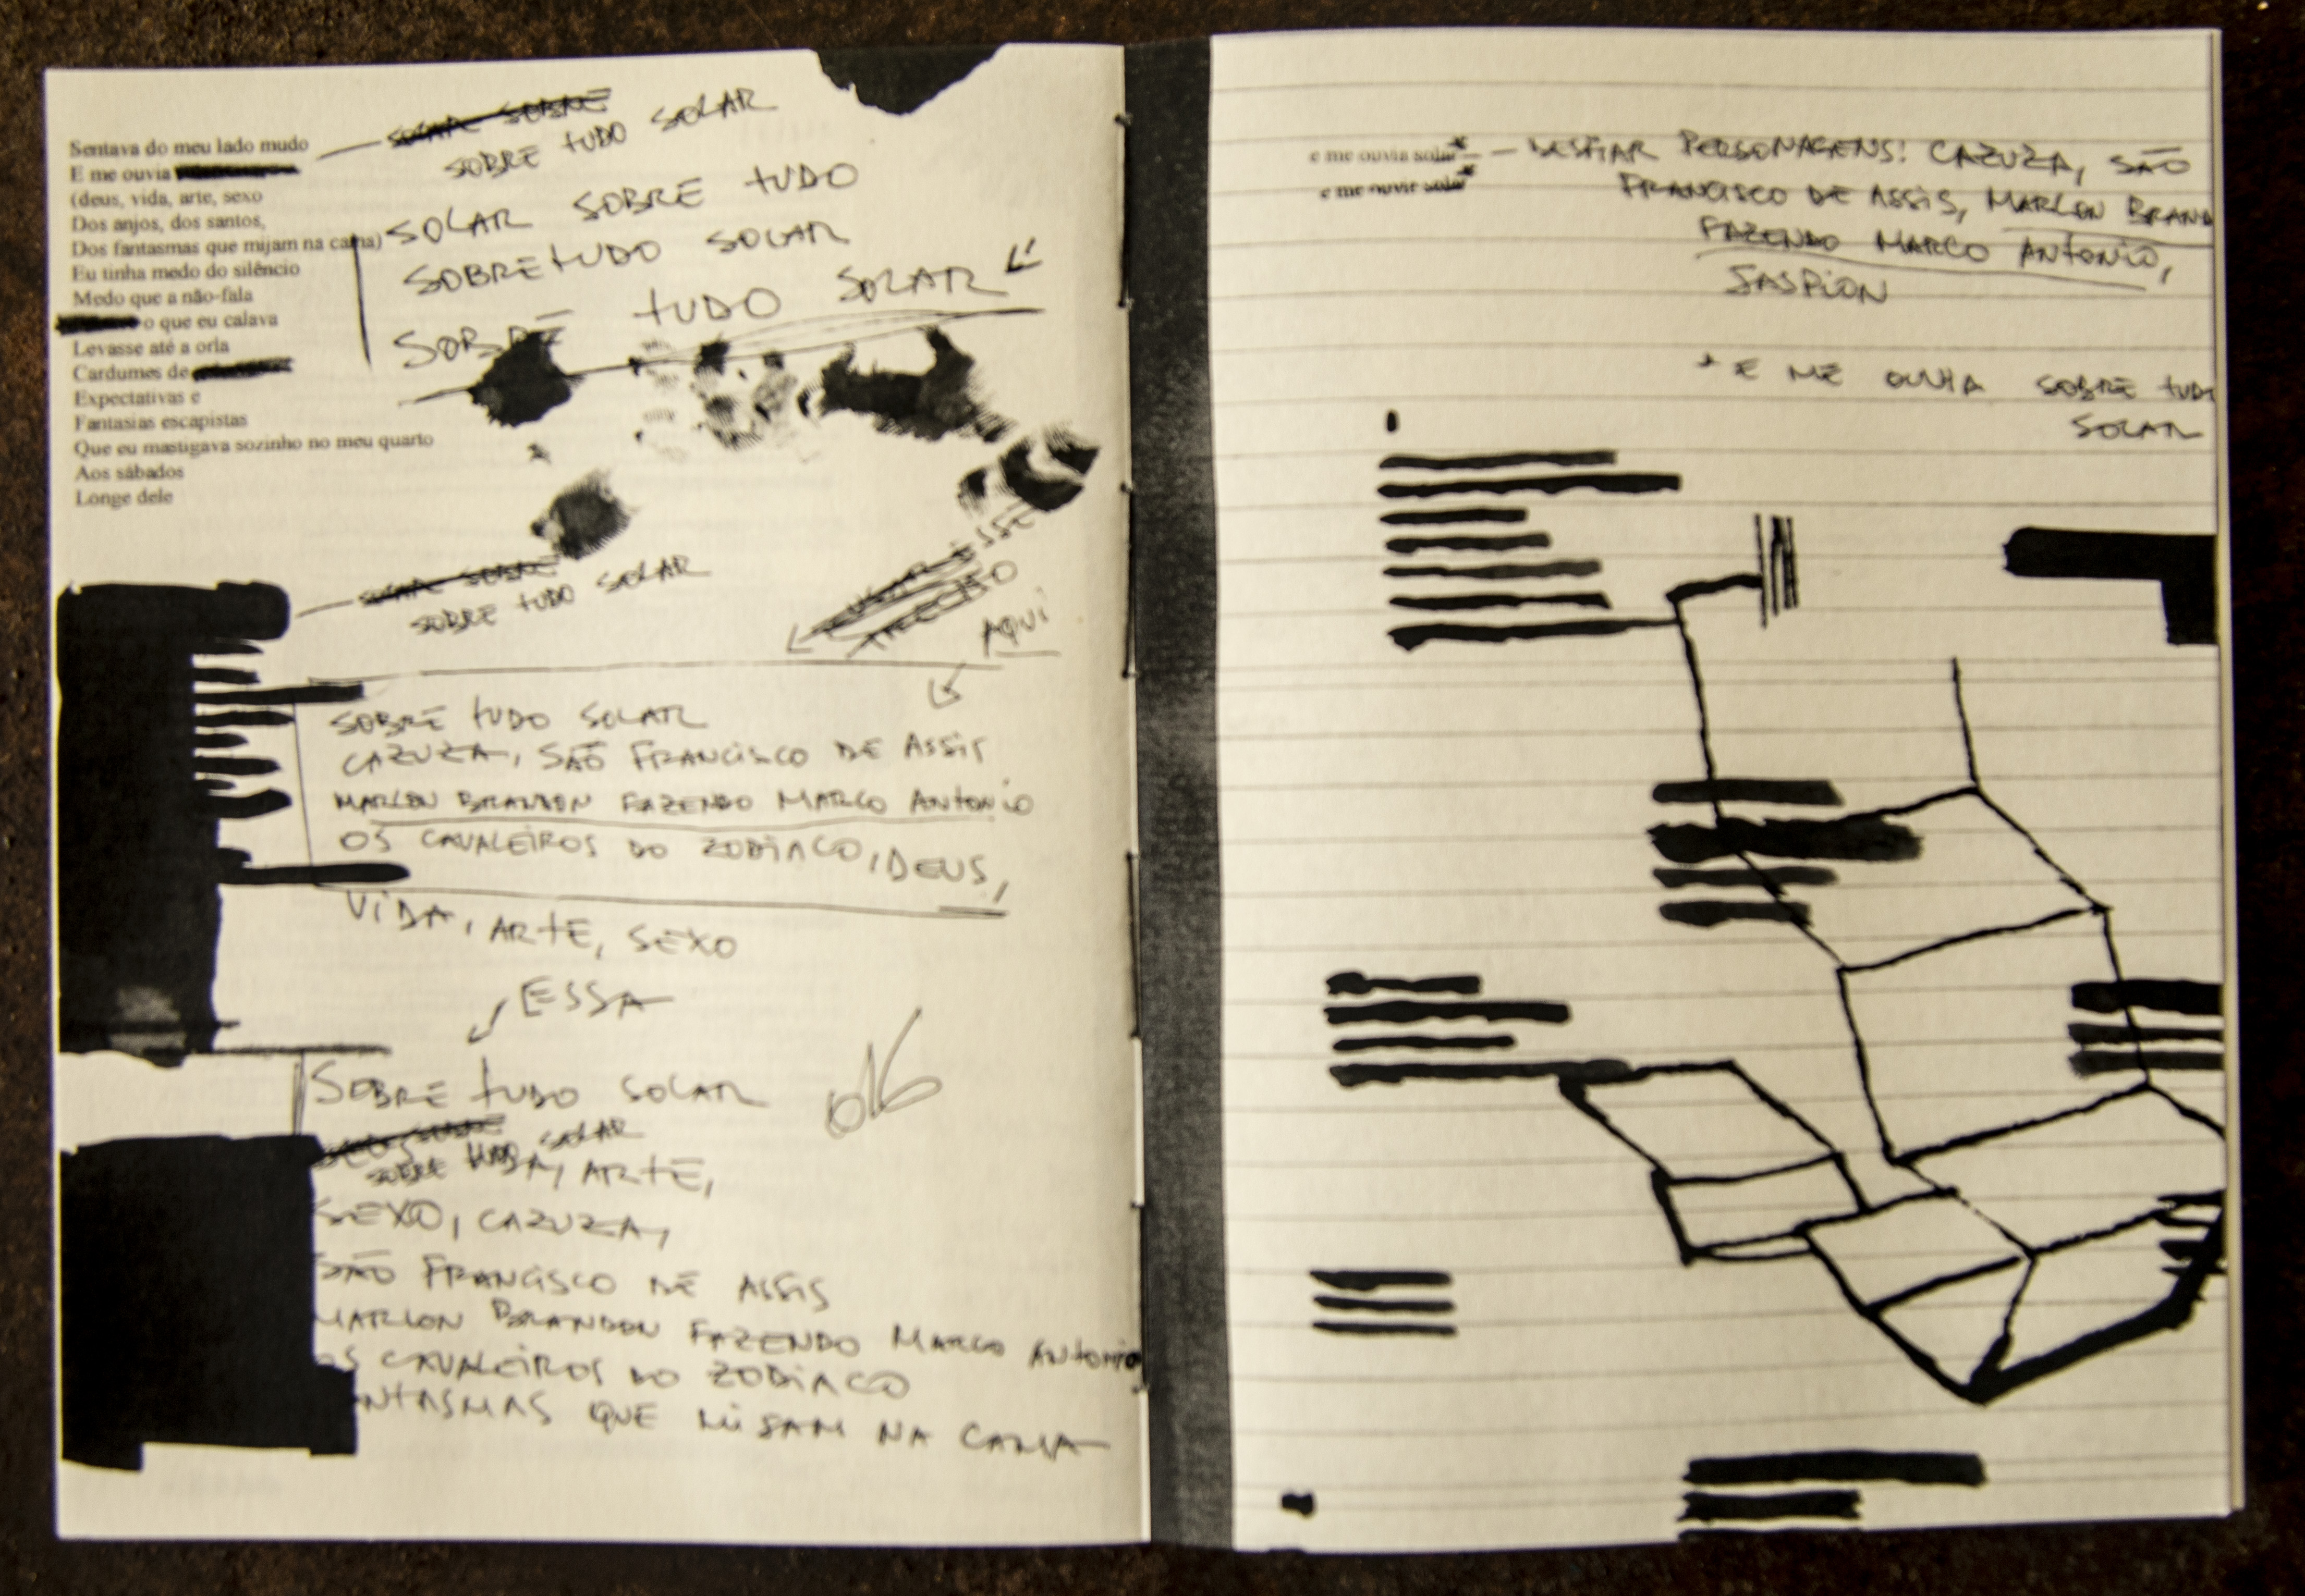 Sentava do meu lado mudo
E me ouvia
(deus, vida, arte, sexo
Dos anjos, dos santos,
Dos fantasmas que mijam na cama)
Eu tinha medo do silêncio
Medo que a não-fala
o que eu calava
Levasse até a orla
Cardumes de
Expectativas e
Fantasias escapistas
Que eu mastigava sozinho no meu quarto
Aos sábados
Longe dele
SOLAR SOBRE
SOBRE TUDO SOLAR
SOLAR SOBRE TUDO
SOBRETUDO SOLAR
SOBRE TUDO SOLAR
SOLAR SOBRE
SOBRE TUDO SOLAR
USAR ESSE
TRECHO
AQUI
SOBRE TUDO SOLAR
CAZUZA, SÃO FRANCISCO DE ASSIS
MARLON BRANDON FAZENDO MARCO ANTONIO
OS CAVALEIROS DO ZODIACO, DEUS,
VIDA, ARTE, SEXO
ESSA
SOBRE TUDO SOLAR
SOBRE TUDO SOLAR
ARTE,
SEXO, CAZUZA,
SÃO FRANCISCO DE ASSIS
MARLON BRANDON FAZENDO MARCO ANTONIO
OS CAVALEIROS DO ZODIACO
NTASMAS QUE MIJAM NA CAMA
OK
e me ouvia solar* — PERSONAGENS: CAZUZA, SÃO
e me ouvir solar*
FRANCISCO DE ASSIS, MARLON BRAND
FAZENDO MARCO ANTONIO,
JASPION
* E ME OUVIA SOBRE TUD
SOLAR